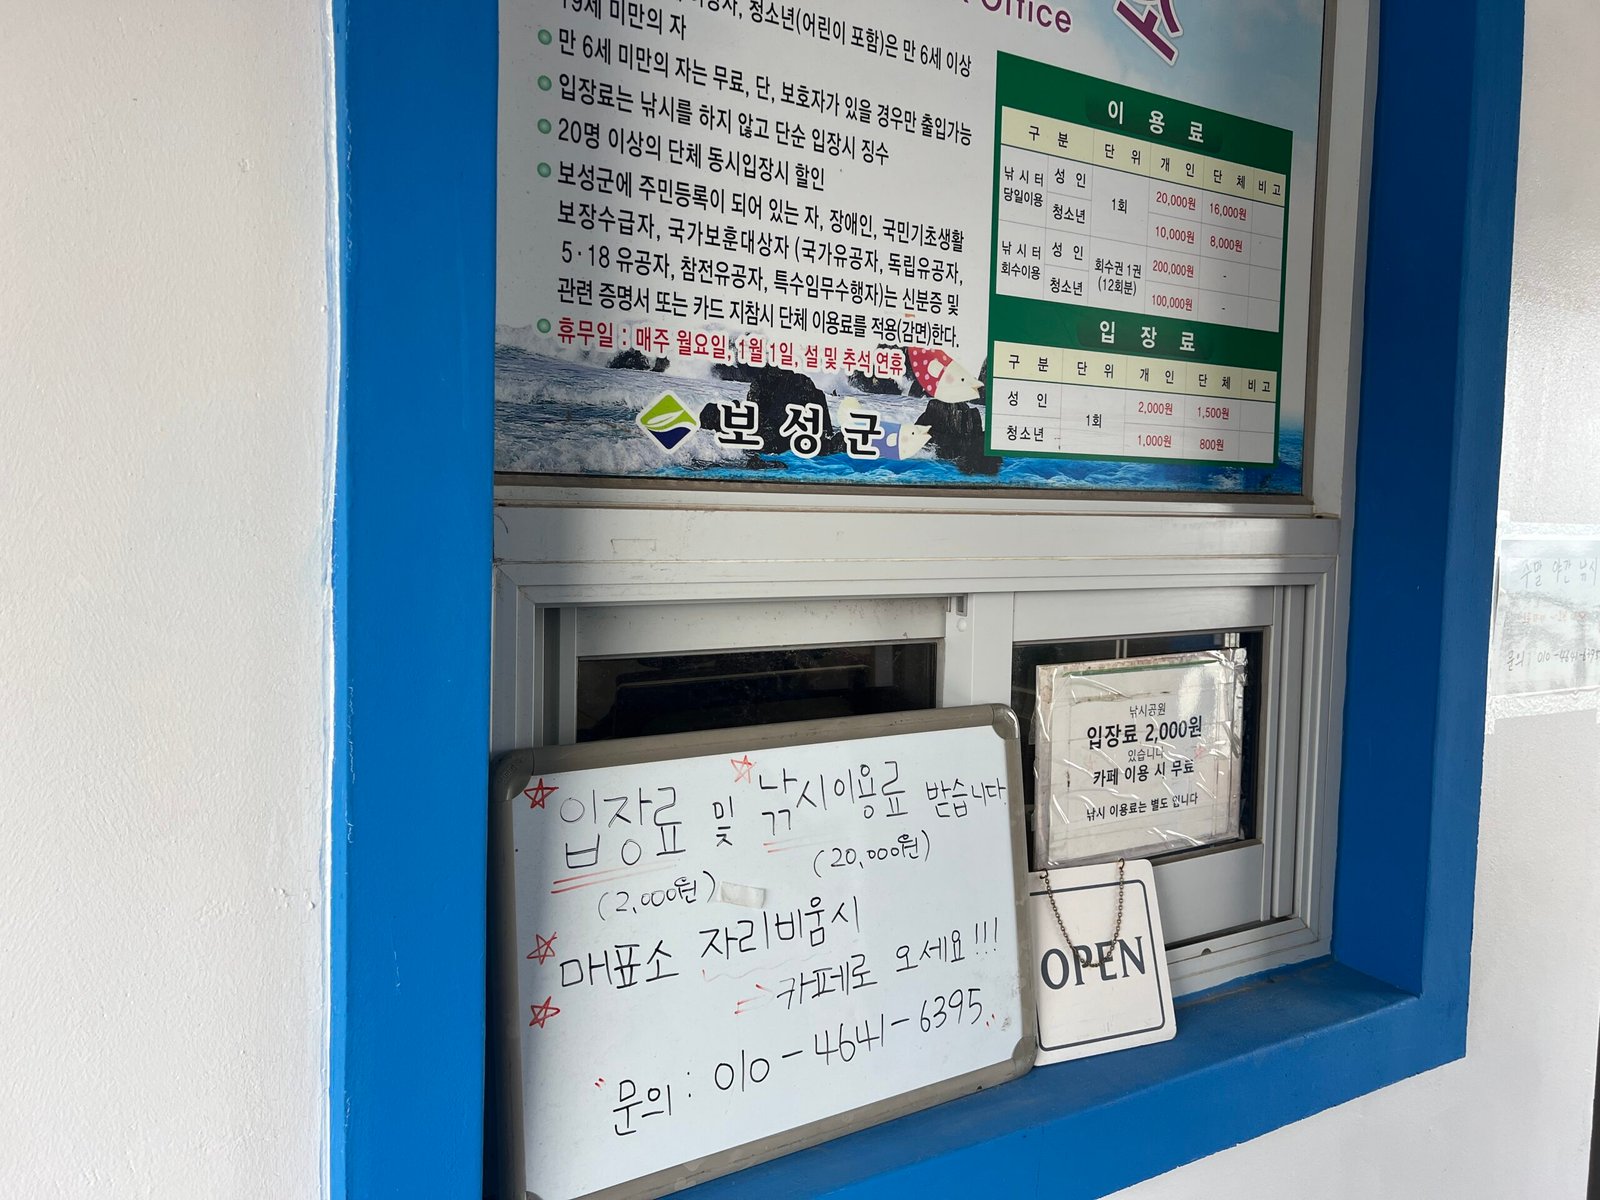 Office
소
이상자, 청소년(어린이 포함)은 만 6세 이상
19세 미만의 자
만 6세 미만의 자는 무료, 단, 보호자가 있을 경우만 출입가능
입장료는 낚시를 하지 않고 단순 입장시 징수
20명 이상의 단체 동시입장시 할인
보성군에 주민등록이 되어 있는 자, 장애인, 국민기초생활
보장수급자, 국가보훈대상자 (국가유공자, 독립유공자,
5·18 유공자, 참전유공자, 특수임무수행자)는 신분증 및
관련 증명서 또는 카드 지참시 단체 이용료를 적용(감면)한다.
휴무일 : 매주 월요일, 1월 1일, 설 및 추석 연휴
보성군
이 용 료
구 분 단 위 개 인 단 체 비고
낚시터 당일이용 성 인 1회 20,000원 16,000원
청소년 10,000원 8,000원
낚시터 회수이용 성 인 회수권 1권 (12회분) 200,000원 -
청소년 100,000원 -
입 장 료
구 분 단 위 개 인 단 체 비고
성 인 1회 2,000원 1,500원
청소년 1,000원 800원
낚시공원
입장료 2,000원
있습니다
카페 이용 시 무료
낚시 이용료는 별도 입니다
OPEN
입장료 및 낚시이용료 받습니다
(2,000원) (20,000원)
매표소 자리비움시
→ 카페로 오세요!!!
문의 : 010-4641-6395
주말 야간 낚시
문의 : 010-4641-6395